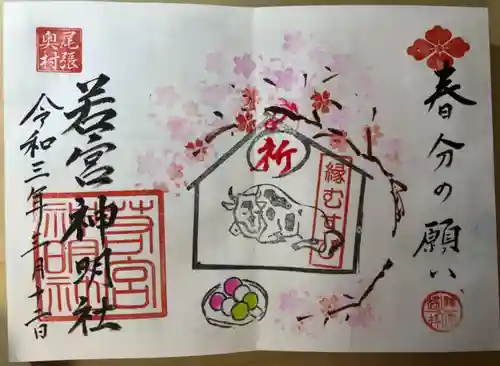 春分の願い
祈
縁むす
尾張
奥村
若宮神明社
若宮
神明社
令和三年三月十二日